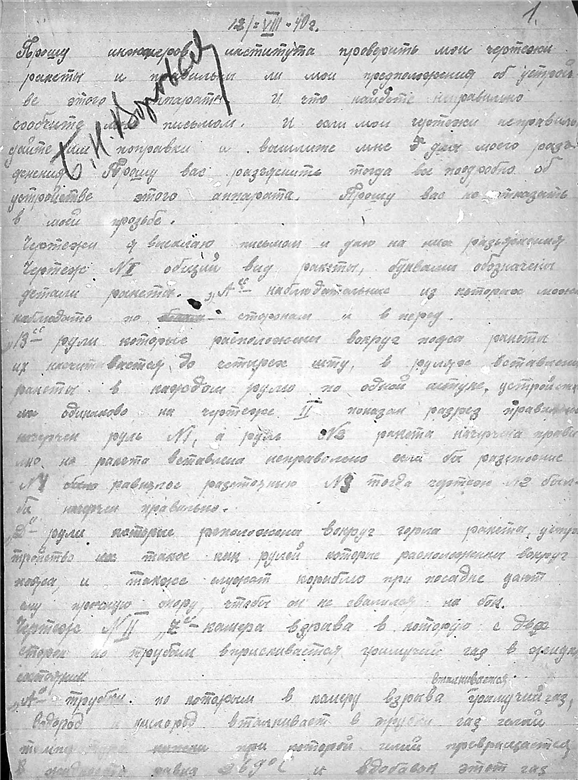 12/-VIII-40г.
1.
Прошу инженеров института проверить мои чертежи
ракеты и правильны ли мои предположения об устройст
ве этого аппарата. И что найдёте неправильно
сообщите мне письмом. И если мои чертежи неправильно
дайте поправки и вышлите мне для моего разъ
яснения. Прошу вас разъяснить тогда все подробно об
устройстве этого аппарата. Прошу вас не отказать
в моей прозьбе.
Чертежи я высылаю письмом и даю на них разъяснения
Чертеж №I общий вид ракеты, буквами обозначены
детали ракеты. "А" наблюдательные из которое можно
наблюдать по сторонам и в перед.
"В" рули которые расположены вокруг носа ракеты
их насчитывается до четырех шту, в рулях вставлены
ракеты в каждом рулю по одной штуке, устройство
их одинаково на чертеже II показан разрез правильно
начерчен руль №1, а руль №2 ракета начерчена прави
льно, но ракета вставлена неправильно если бы разстояние
№1 равнялось разстоянию №3 тогда чертеж №2 был
бы начерчен правильно.
"Д" рули которые расположены вокруг горла ракеты, устро
тройство их такое как рулей которые расположены вокруг
носа, и также служат кораблю при посадке дают
ему нужную опору, чтобы он не свалился на бок.
Чертеж №II "Z" камера взрыва в которую с двух
сторон по трубам впрыскивается гремучий газ в жидком
состоянии
"А" трубы по которым в камеру взрыва вталкивается гремучий газ,
Водород и кислород вталкивает в трубы газ гелий
при которой гелий превращается
в жидкость равна и вдобавок этот газ